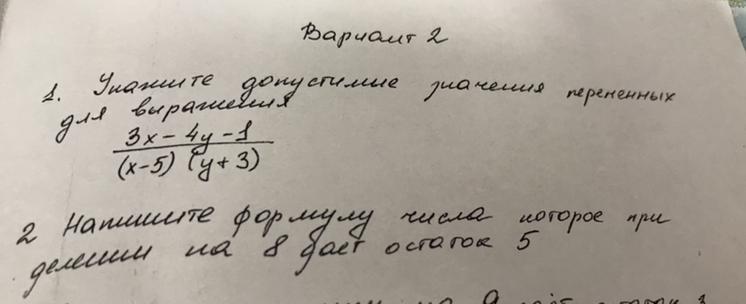 Вариант 2
1. Укажите допустимые значения переменных
для выражения
3x - 4y - 1
(x-5) (y+3)
2 Напишите формулу числа которое при
делении на 8 дает остаток 5